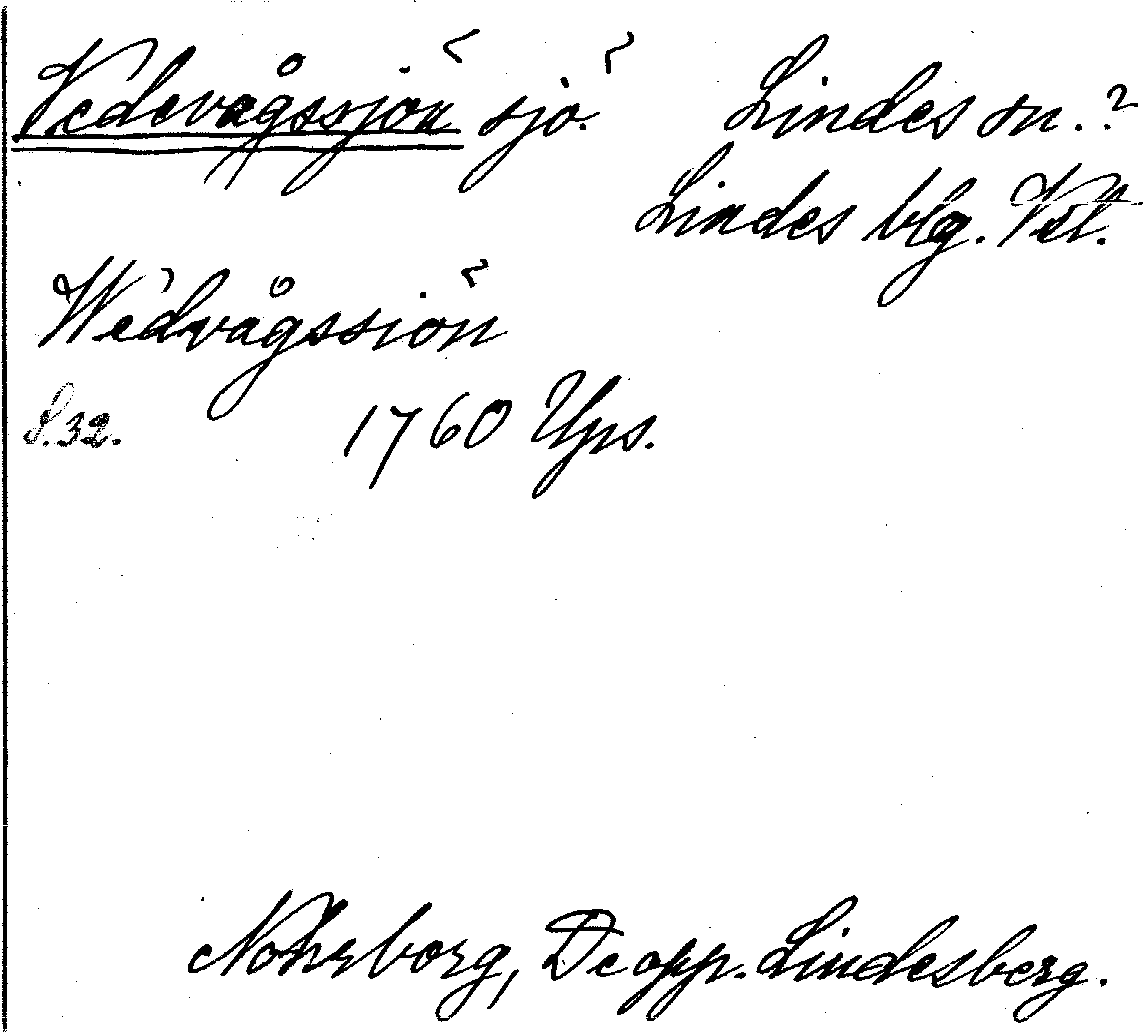 Vedevågssjön sjö. Lindes sn.?
Lindes blg. Vstl.
Wedvågssiön
S.32. 1760 Ups.
Nohrborg, De opp. Lindesberg.